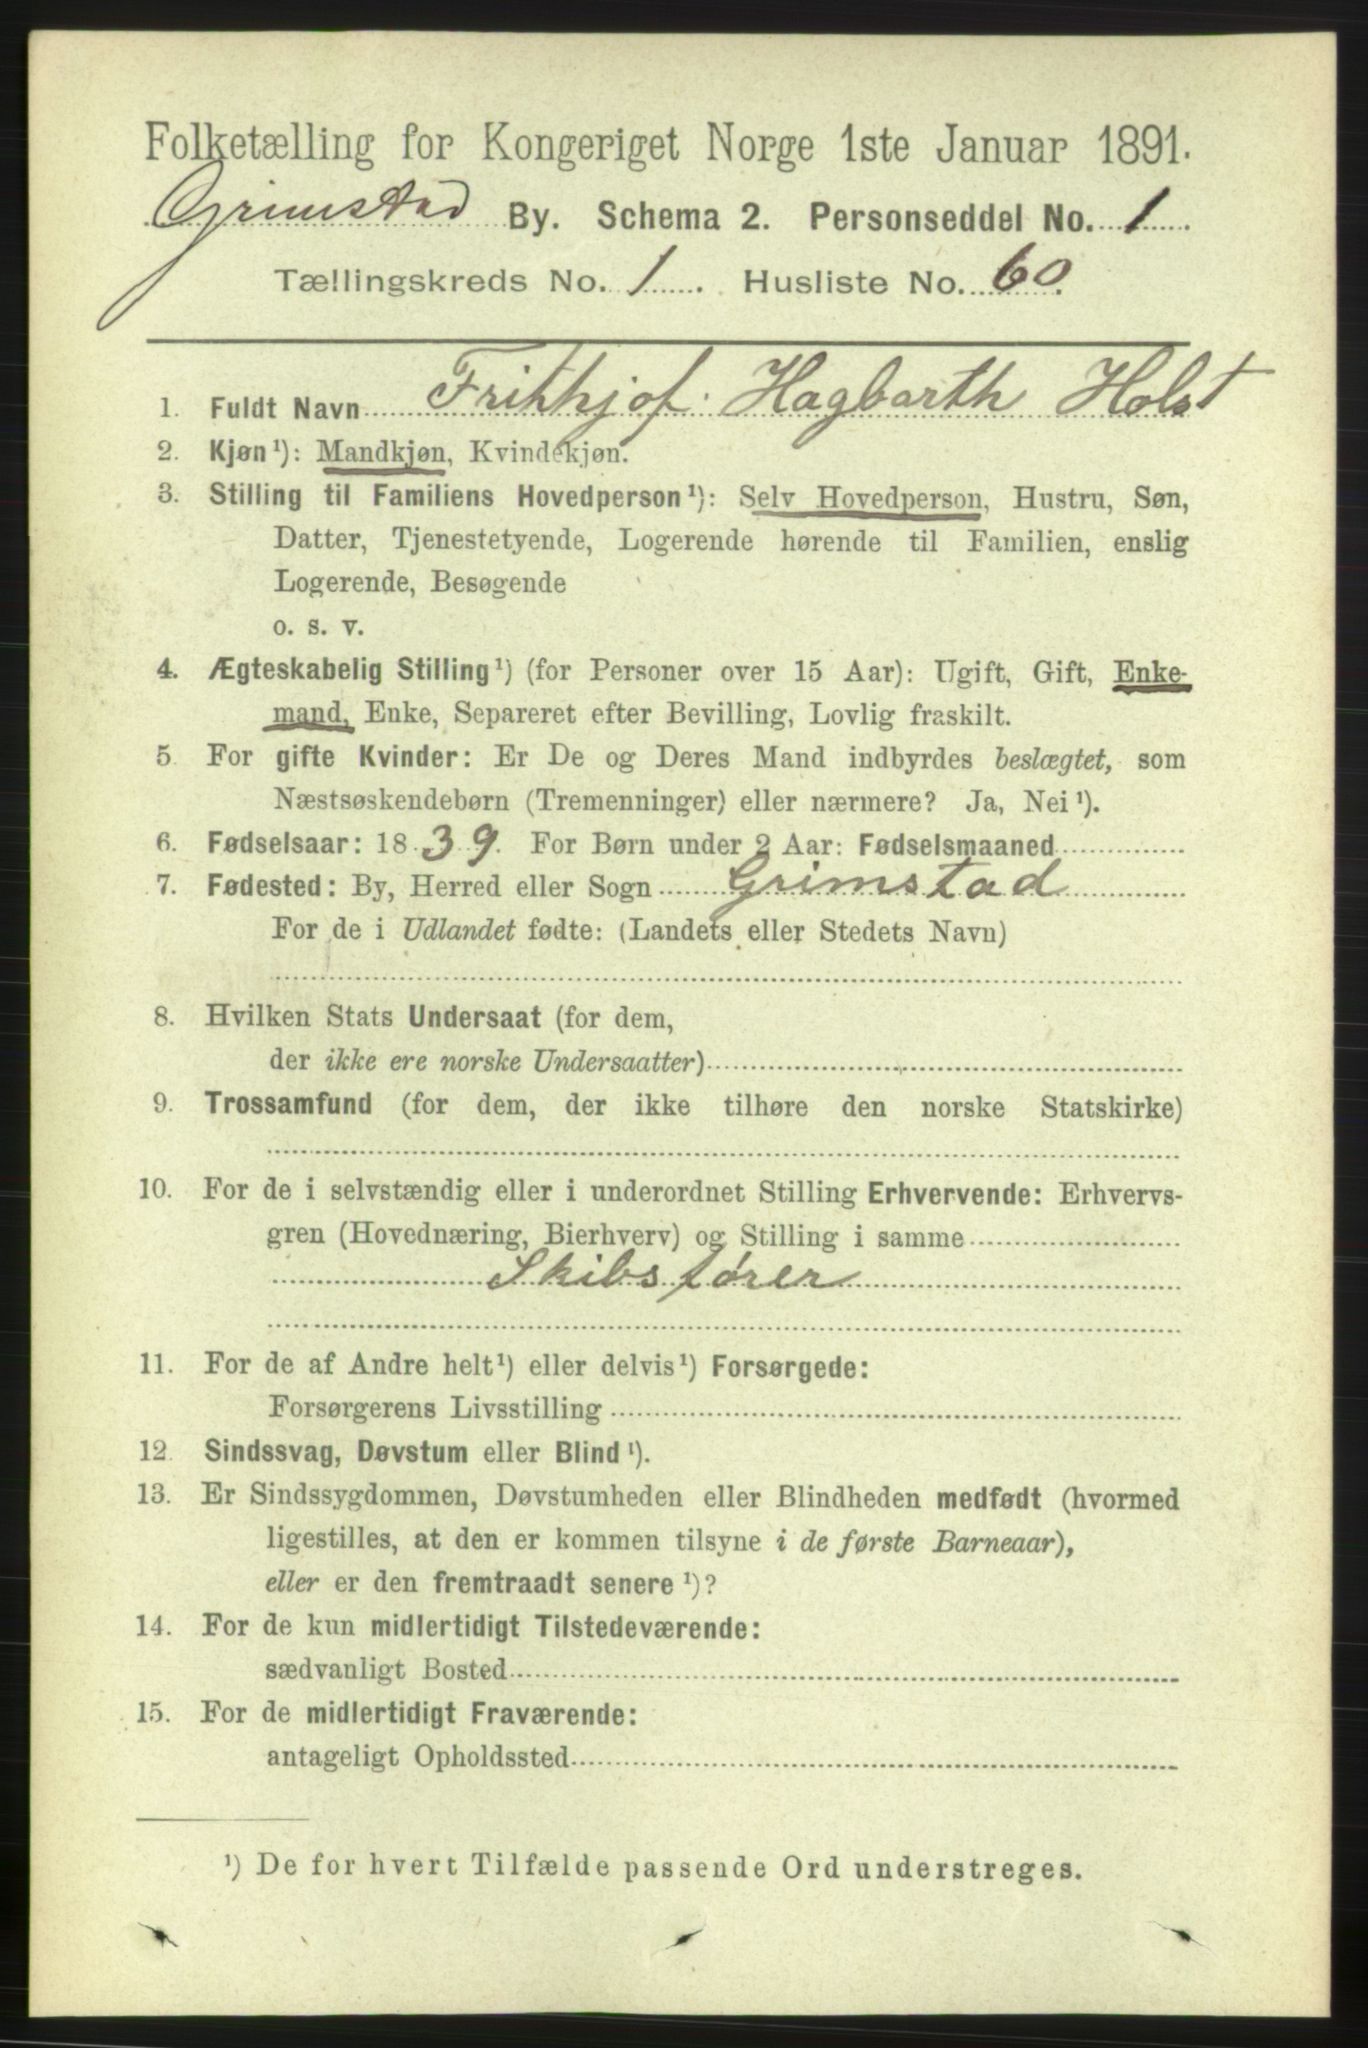 Folketælling for Kongeriget Norge 1ste Januar 1891.
Grimstad By. Schema 2. Personseddel No. 1.
Tællingskreds No. 1. Husliste No. 60.
1. Fuldt Navn Frithhjof Hagbarth Holst
2. Kjøn¹): Mandkjøn, Kvindekjøn.
3. Stilling til Familiens Hovedperson¹): Selv Hovedperson, Hustru, Søn,
Datter, Tjenestetyende, Logerende hørende til Familien, enslig
Logerende, Besøgende
o. s. v.
4. Ægteskabelig Stilling¹) (for Personer over 15 Aar): Ugift, Gift, Enke-
mand, Enke, Separeret efter Bevilling, Lovlig fraskilt.
5 For gifte Kvinder: Er De og Deres Mand indbyrdes beslægtet, som
Næstsøskendebørn (Tremenninger) eller nærmere? Ja, Nei¹).
6. Fødselsaar: 1839. For Børn under 2 Aar: Fødselsmaaned
7. Fødested: By, Herred eller Sogn Grimstad
For de i Udlandet fødte: (Landets eller Stedets Navn)
8. Hvilken Stats Undersaat (for dem,
der ikke ere norske Undersaatter)
9. Trossamfund (for dem, der ikke tilhøre den norske Statskirke)
10. For de i selvstændig eller i underordnet Stilling Erhvervende: Erhvervs-
gren (Hovednæring, Bierhverv) og Stilling i samme
Skibsfører
11. For de af Andre helt¹) eller delvis¹) Forsørgede:
Forsørgerens Livsstilling
12. Sindssvag, Døvstum eller Blind¹).
13. Er Sindssygdommen, Døvstumheden eller Blindheden medfødt (hvormed
ligestilles, at den er kommen tilsyne i de første Barneaar),
eller er den fremtraadt senere¹)?
14. For de kun midlertidigt Tilstedeværende:
sædvanligt Bosted
15. For de midlertidigt Fraværende:
antageligt Opholdssted
¹) De for hvert Tilfælde passende Ord understreges.